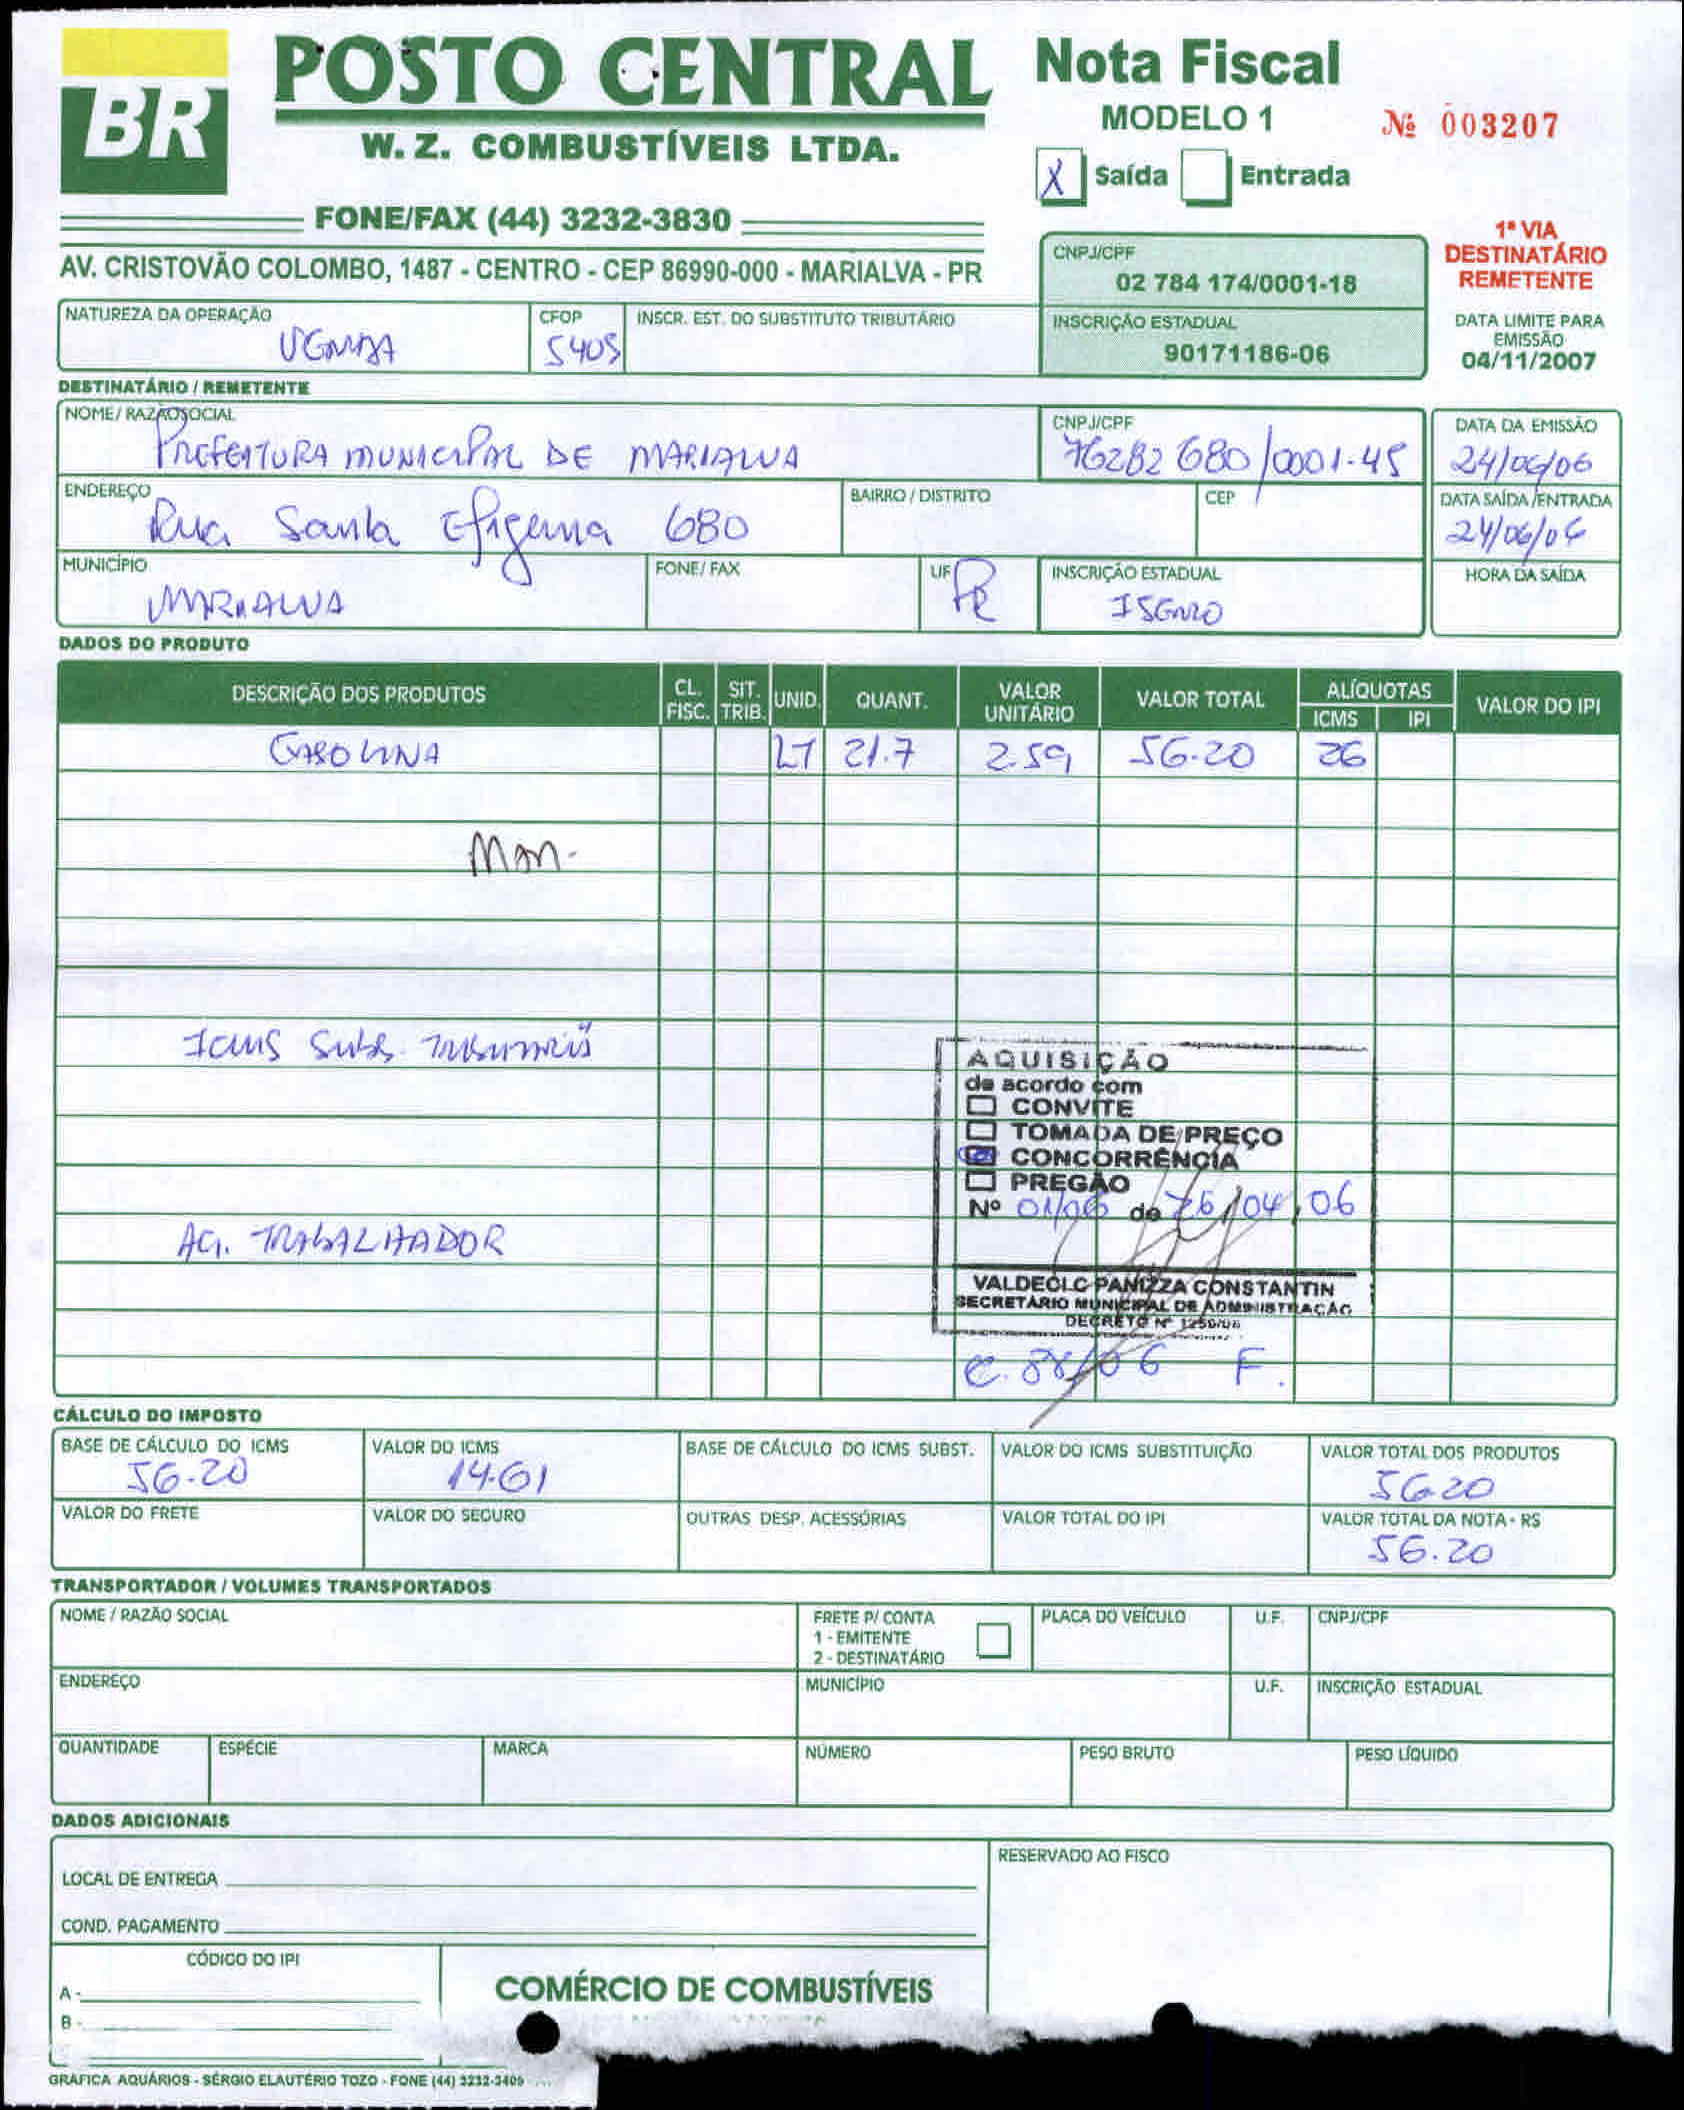 BR
POSTO CENTRAL
W. Z. COMBUSTÍVEIS LTDA.
FONE/FAX (44) 3232-3830
AV. CRISTOVÃO COLOMBO, 1487 - CENTRO - CEP 86990-000 - MARIALVA - PR
Nota Fiscal
MODELO 1
Nº 003207
X Saída Entrada
1ª VIA
DESTINATÁRIO
REMETENTE
CNPJ/CPF
02 784 174/0001-18
INSCRIÇÃO ESTADUAL
90171186-06
DATA LIMITE PARA
EMISSÃO
04/11/2007
NATUREZA DA OPERAÇÃO CFOP INSCR. EST. DO SUBSTITUTO TRIBUTÁRIO
VENDA 5405
DESTINATÁRIO / REMETENTE
NOME / RAZÃO SOCIAL CNPJ/CPF DATA DA EMISSÃO
PREFEITURA MUNICIPAL DE MARIALVA 76282 680/0001-45 24/06/06
ENDEREÇO BAIRRO / DISTRITO CEP DATA SAÍDA/ENTRADA
Rua Santa Efigenia 680 24/06/06
MUNICÍPIO FONE/ FAX UF INSCRIÇÃO ESTADUAL HORA DA SAÍDA
MARIALVA PR ISENTO
DADOS DO PRODUTO
DESCRIÇÃO DOS PRODUTOS CL. FISC. SIT. TRIB. UNID. QUANT. VALOR UNITÁRIO VALOR TOTAL ALÍQUOTAS ICMS IPI VALOR DO IPI
GASOLINA LT 21.7 2.59 56.20 26
ICMS Subs. TRIBUTARIA
AQUISIÇÃO
de acordo com
CONVITE
TOMADA DE PREÇO
CONCORRÊNCIA
PREGÃO
Nº 01/06 de 26/04/06
AG. TRABALHADOR
VALDECIC PANIZZA CONSTANTIN
SECRETÁRIO MUNICIPAL DE ADMINISTRAÇÃO
DECRETO Nº
C. 88/06 F.
CÁLCULO DO IMPOSTO
BASE DE CÁLCULO DO ICMS VALOR DO ICMS BASE DE CÁLCULO DO ICMS SUBST. VALOR DO ICMS SUBSTITUIÇÃO VALOR TOTAL DOS PRODUTOS
56.20 14.61 56.20
VALOR DO FRETE VALOR DO SEGURO OUTRAS DESP. ACESSÓRIAS VALOR TOTAL DO IPI VALOR TOTAL DA NOTA - R$
56.20
TRANSPORTADOR / VOLUMES TRANSPORTADOS
NOME / RAZÃO SOCIAL FRETE P/ CONTA PLACA DO VEÍCULO U.F. CNPJ/CPF
1 - EMITENTE
2 - DESTINATÁRIO
ENDEREÇO MUNICÍPIO U.F. INSCRIÇÃO ESTADUAL
QUANTIDADE ESPÉCIE MARCA NÚMERO PESO BRUTO PESO LÍQUIDO
DADOS ADICIONAIS
RESERVADO AO FISCO
LOCAL DE ENTREGA
COND. PAGAMENTO
CÓDIGO DO IPI
A -
B -
COMÉRCIO DE COMBUSTÍVEIS
GRÁFICA AQUÁRIOS - SÉRGIO ELAUTÉRIO TOZO - FONE (44) 3232-3409